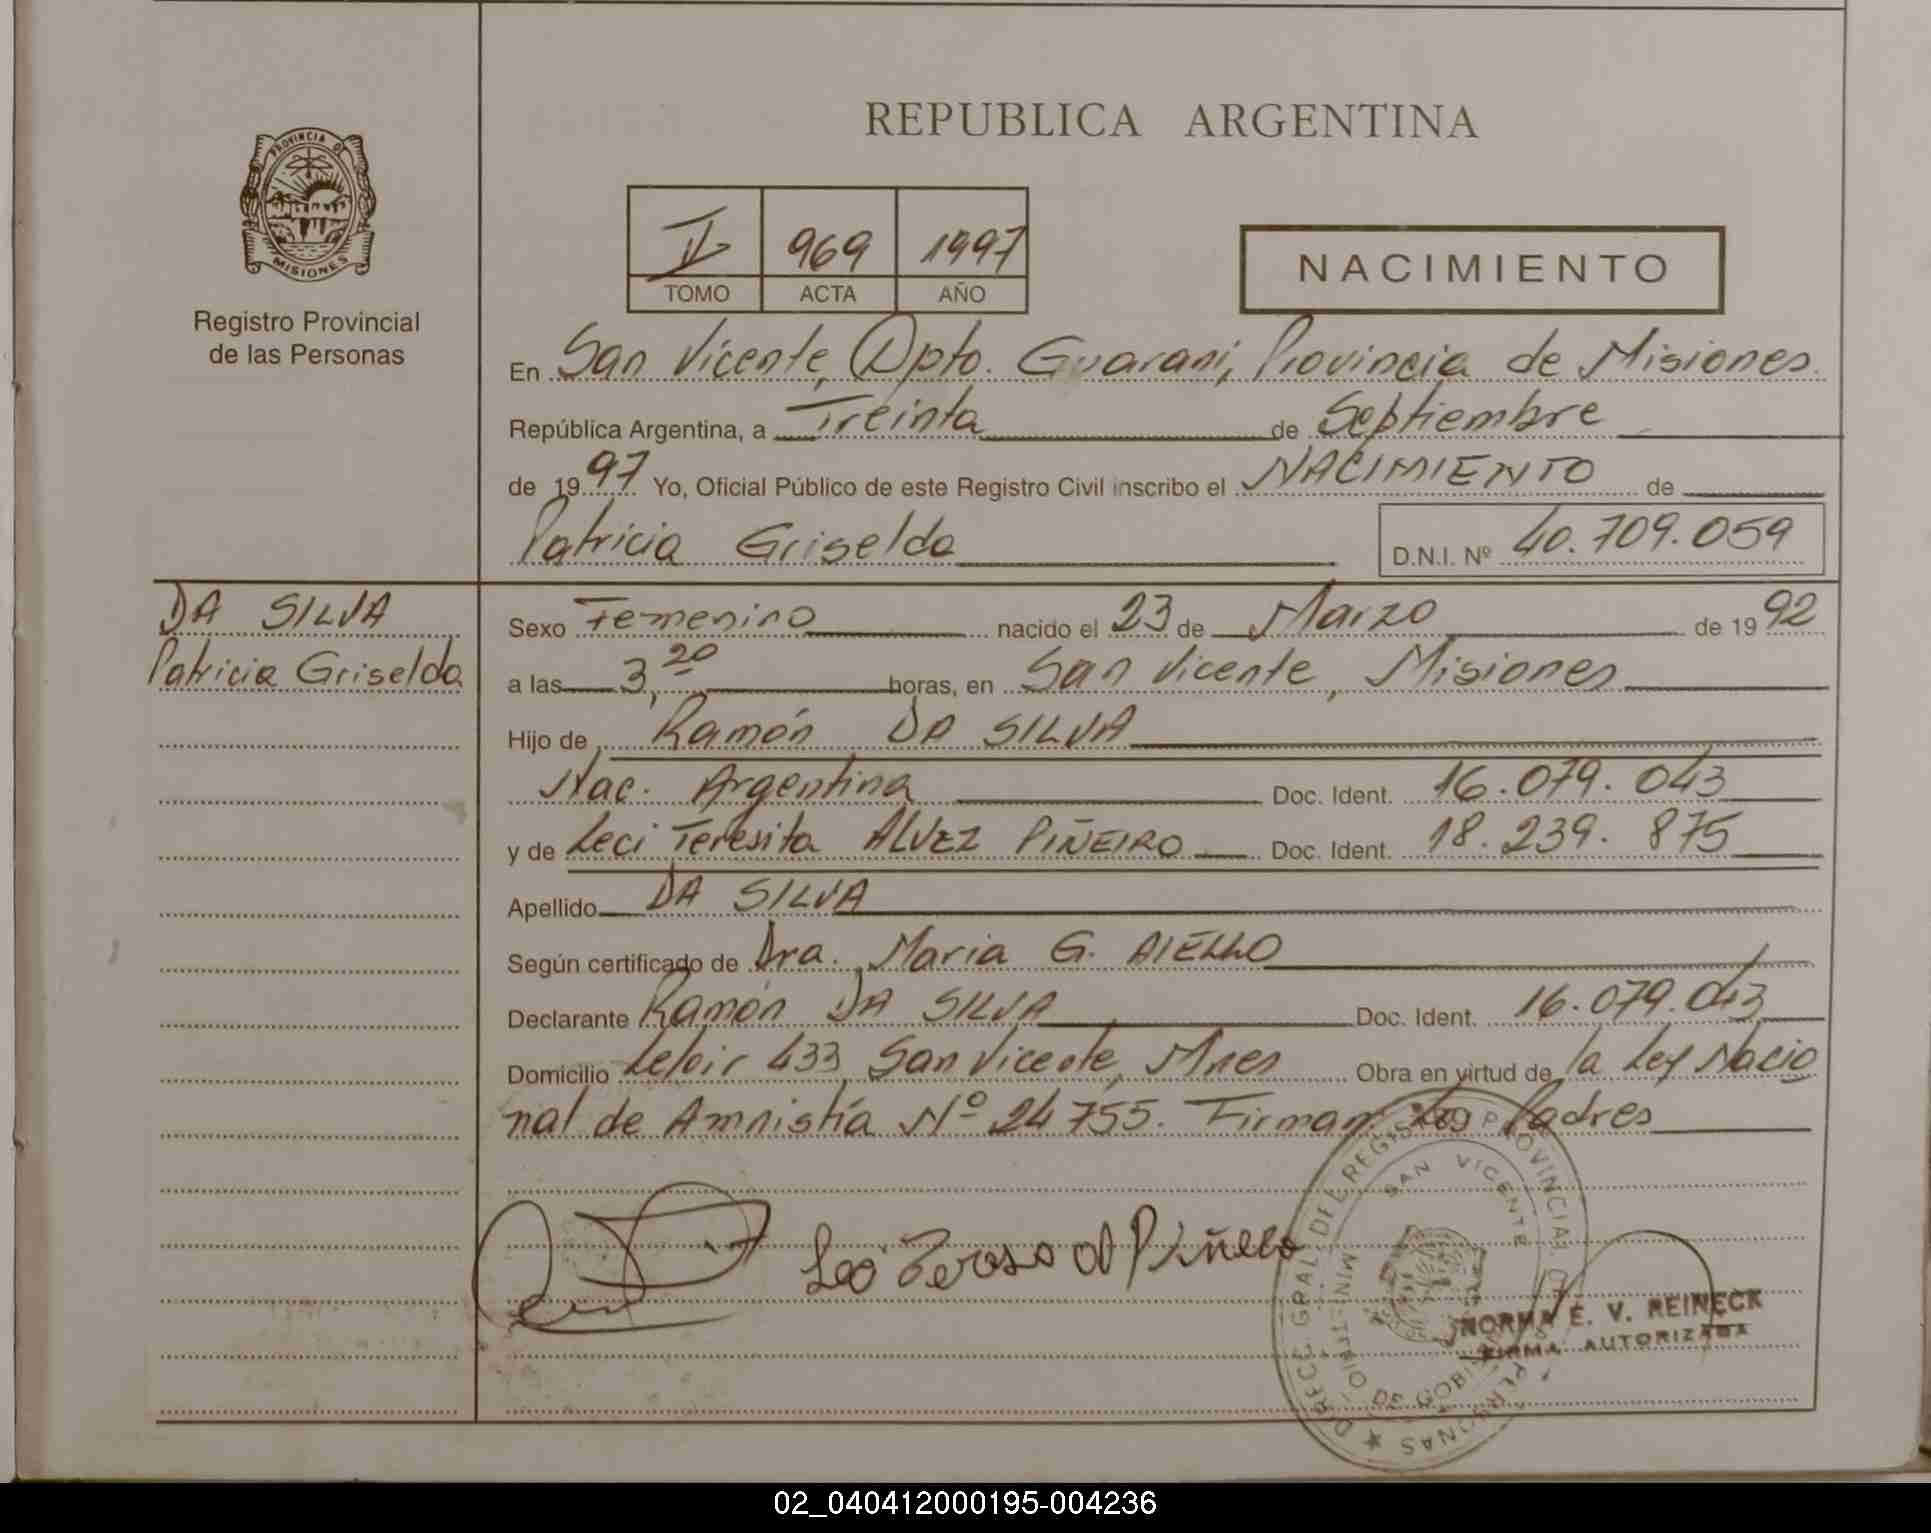 REPUBLICA ARGENTINA
PROVINCIA DE
MISIONES
Registro Provincial
de las Personas
969 1997
TOMO ACTA AÑO
NACIMIENTO
En San Vicente, Dpto. Guarani, Provincia de Misiones.
República Argentina, a Treinta de Septiembre
de 1997 Yo, Oficial Público de este Registro Civil inscribo el NACIMIENTO de
Patricia Griselda D.N.I. Nº 40.709.059
DA SILVA
Patricia Griselda
Sexo Femenino nacido el 23 de Marzo de 1992
a las 3,20 horas, en San Vicente, Misiones
Hijo de Ramón DA SILVA
Nac. Argentina Doc. Ident. 16.079.043
y de Leci Teresita ALVEZ PIÑEIRO Doc. Ident. 18.239.875
Apellido DA SILVA
Según certificado de Dra. Maria G. AIELLO
Declarante Ramón DA SILVA Doc. Ident. 16.079.043
Domicilio Leloir 433 San Vicente, Mnes Obra en virtud de la Ley Nacio
nal de Amnistía Nº 24755. Firman los Padres
DIRECC. GRAL. DEL REGISTRO PROVINCIAL DE LAS PERSONAS
SAN VICENTE
MINISTERIO DE GOBIERNO
NORMA E. V. REINECK
FIRMA AUTORIZADA
02_040412000195-004236